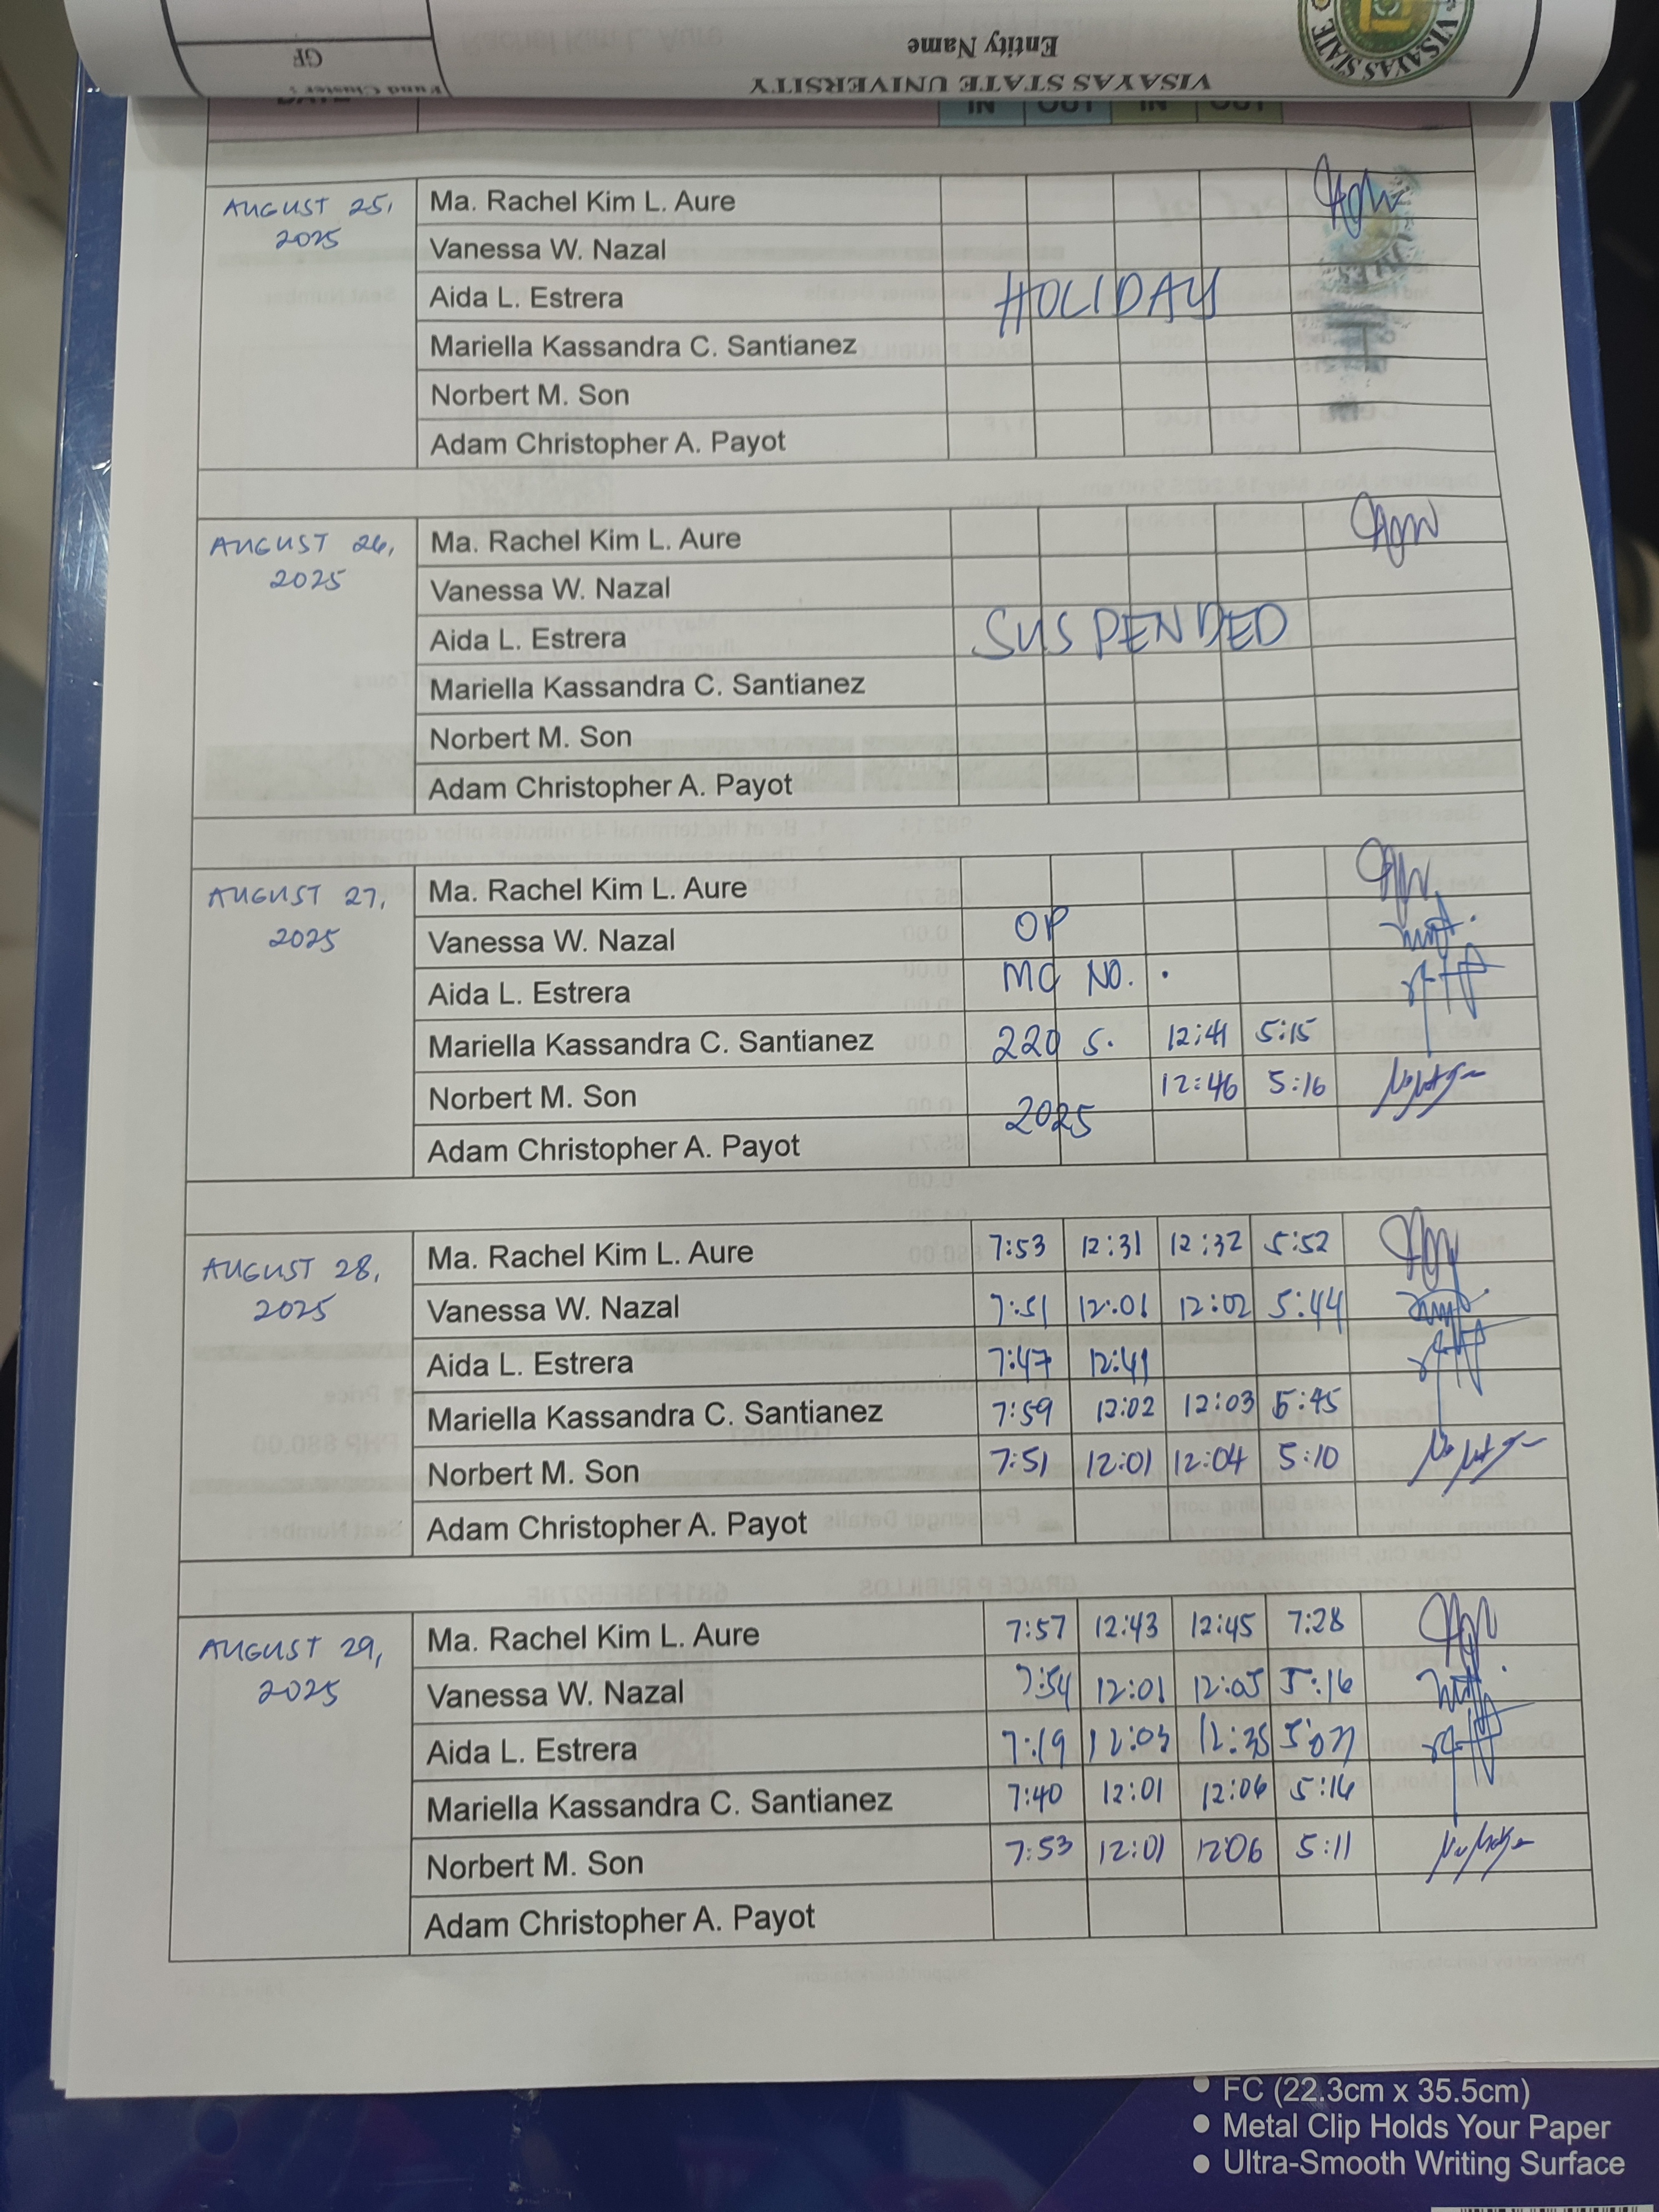 VISAYAS STATE
VISAYAS STATE UNIVERSITY
Entity Name
Fund Cluster :
GF
IN OUT IN OUT
AUGUST 25, 2025
Ma. Rachel Kim L. Aure
Vanessa W. Nazal
Aida L. Estrera
HOLIDAY
Mariella Kassandra C. Santianez
Norbert M. Son
Adam Christopher A. Payot
AUGUST 26, 2025
Ma. Rachel Kim L. Aure
Vanessa W. Nazal
Aida L. Estrera
SUSPENDED
Mariella Kassandra C. Santianez
Norbert M. Son
Adam Christopher A. Payot
AUGUST 27, 2025
Ma. Rachel Kim L. Aure
Vanessa W. Nazal OP
Aida L. Estrera MC NO.
Mariella Kassandra C. Santianez 220 S. 12:41 5:15
Norbert M. Son 2025 12:46 5:16
Adam Christopher A. Payot
AUGUST 28, 2025
Ma. Rachel Kim L. Aure 7:53 12:31 12:32 5:52
Vanessa W. Nazal 7:51 12:01 12:02 5:44
Aida L. Estrera 7:47 12:41
Mariella Kassandra C. Santianez 7:59 12:02 12:03 5:45
Norbert M. Son 7:51 12:01 12:04 5:10
Adam Christopher A. Payot
AUGUST 29, 2025
Ma. Rachel Kim L. Aure 7:57 12:43 12:45 7:28
Vanessa W. Nazal 7:54 12:01 12:05 5:16
Aida L. Estrera 7:19 12:03 12:35 5:07
Mariella Kassandra C. Santianez 7:40 12:01 12:06 5:16
Norbert M. Son 7:53 12:01 1206 5:11
Adam Christopher A. Payot
FC (22.3cm x 35.5cm)
Metal Clip Holds Your Paper
Ultra-Smooth Writing Surface